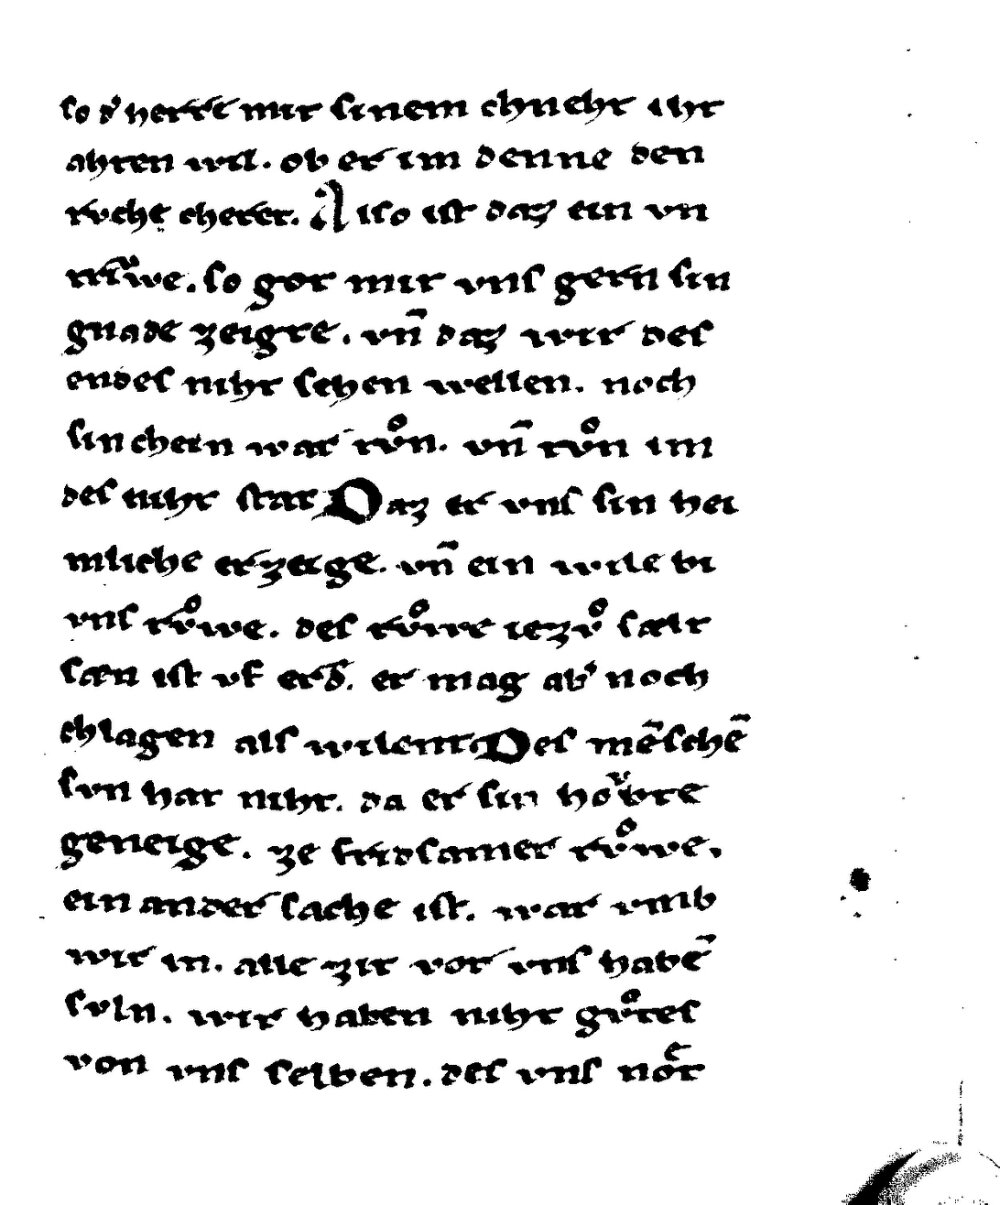 so d͛ herre mit sinem chneht iht
ahten wil. ob er im denne den
rvche cheret. Also ist daz ein vn
triͮwe. so got mit vns gern sin
gnade zeigte. vn̄ daz wir des
endes niht sehen wellen. noch
sin chein war tvͦn. vn̄ tvͦn im
des niht stat Daz er vns sin hei
mliche erzeige. vn̄ ein wile bi
vns rvͦwe. des rvͦwe iezvͦ sælt
sæn ist vf erd͛. er mag ab͛ noch
chlagen als wilent Des mēschē
svn hat niht. da er sin hoͮbte
geneige. ze fridsamer rvͦwe.
ein ander sache ist. war vmb
wir in. alle zit vor vns habē
svln. wir haben niht gvͦtes
von vns selben. des vns noͤt